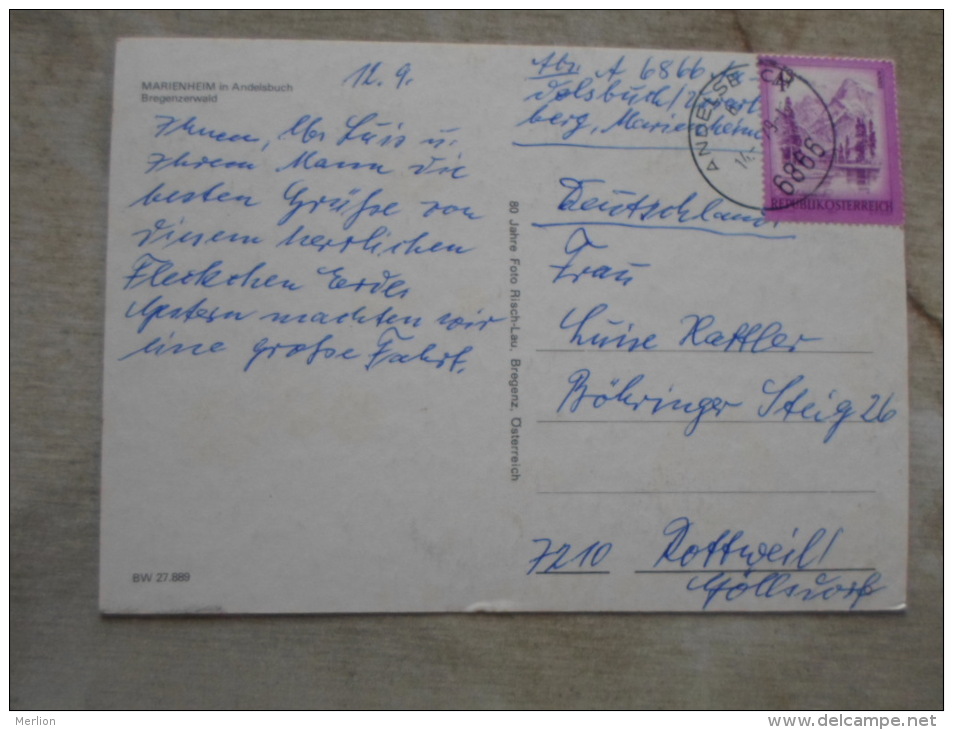 MARIENHEIM in Andelsbuch
Bregenzerwald
12.9.
Ihnen, lb. Luis u.
Ihrem Mann die
besten Grüße von
diesem herrlichen
Fleckchen Erde.
Gestern machten wir
eine große Fahrt.
BW 27.889
80 Jahre Foto Risch-Lau, Bregenz, Österreich
Abs. A 6866 An-
delsbuch/
berg, Marienheim
6866
REPUBLIK ÖSTERREICH
Deutschland
Frau
Luise Kattler
Böhringer Steig 26
7210 Rottweil/
Göllsdorf
Merlion
http://www.delcampe.net